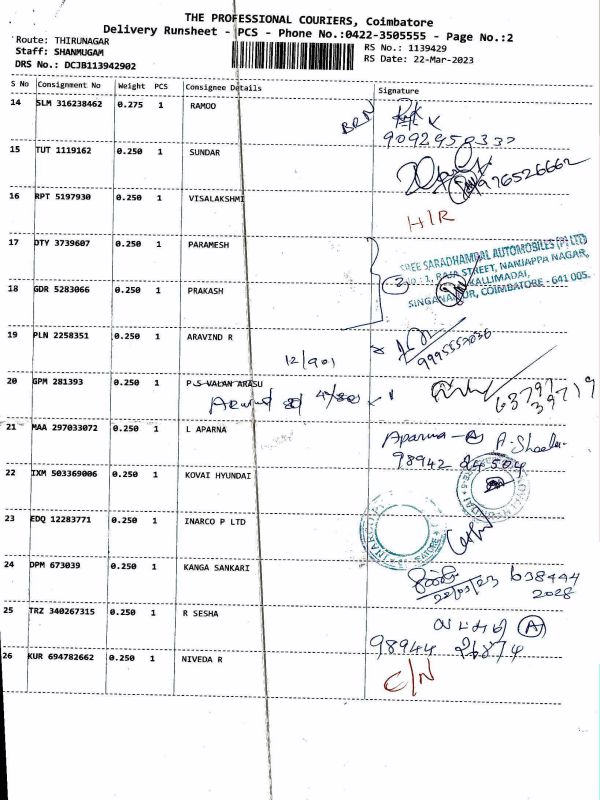 THE PROFESSIONAL COURIERS, Coimbatore
Delivery Runsheet - PCS - Phone No.:0422-3505555 - Page No.:2
Route: THIRUNAGAR
Staff: SHANMUGAM
DRS No.: DCJB113942902
RS No.: 1139429
RS Date: 22-Mar-2023
S No Consignment No Weight PCS Consignee Details Signature
14 SLM 316238462 0.275 1 RAMOO
15 TUT 1119162 0.250 1 SUNDAR
9976526662
16 RPT 5197930 0.250 1 VISALAKSHMI
H/R
17 DTY 3739607 0.250 1 PARAMESH
SREE SARADHAMBAL AUTOMOBILES (P) LTD
NO : 1, RAJA STREET, NANJAPPA NAGAR,
KALLIMADAI,
SINGANALLUR, COIMBATORE - 641 005.
2
18 GDR 5283066 0.250 1 PRAKASH
19 PLN 2258351 0.250 1 ARAVIND R
12/901
20 GPM 281393 0.250 1 P S VALAN ARASU
63797
39719
21 MAA 297033072 0.250 1 L APARNA
Aparna - A
98942 84504
22 IXM 503369006 0.250 1 KOVAI HYUNDAI
23 EDQ 12283771 0.250 1 INARCO P LTD
24 DPM 673039 0.250 1 KANGA SANKARI
22/03/23 638444
2028
25 TRZ 340267315 0.250 1 R SESHA
A
98944 26874
26 KUR 694782662 0.250 1 NIVEDA R
C/N